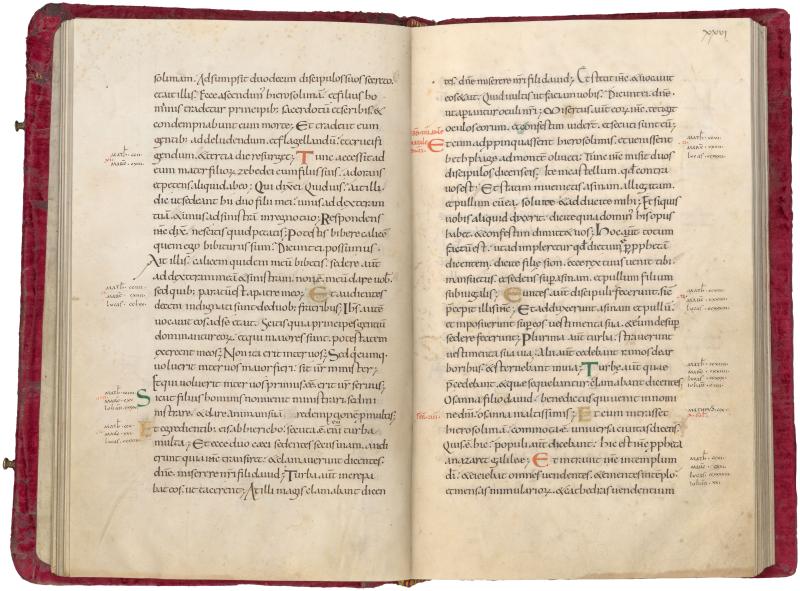 solimam. Adsumpsit duodecim discipulos suos secreto.
et ait illis. Ecce ascendim' hierosolimā. et filius ho
minis tradetur principib; sacerdotū et scribis. &
condempnabunt eum morte; Et tradent eum
gentib; ad deludendum. et flagellandū. et crucifi
gendum. & tertia die resurget; Tunc accessit ad
eum mater filiorum zebedei cum filiis suis. adorans
et petens aliquid ab eo; Qui dixit. Quid uis. Ait illa.
dic ut sedeant hii duo filii mei. unus ad dexteram
tuā. & unus ad sinistrā in regno tuo; Respondens
ihc dix. nescitis quid petatis; Potestis bibere calicē
quem ego bibiturus sum. Dicunt ei. possumus.
Ait illis. calicem quidem meū bibetis. sedere aūt
ad dexteram meā & sinistram. non ē meū dare uob.
sed quib; paratū est a patre meo; Et audientes
decem indignati sunt de duob; fratribus; Ihs aūt
uocauit eos ad se & ait. Scitis quia principes gentiū
dominantur eorum. et qui maiores sunt. potestatem
exercent in eos; Non ita erit inter uos; Sed quicumq;
uoluerit inter uos maior fieri. sit ur minister.
Et qui uoluerit inter uos primus eē. erit ur seruus;
Sicut filius hominis non uenit ministrari. sed mi
nistrare. & dare animam suā redemptionē p multis;
Et egredientib; eis ab hiericho. secuta ē eū turba
multa; Et ecce duo caeci sedentes secus uiam. audi
erunt quia ihc transiret. & clamauerunt dicentes.
dne miserere nri fili dauid; Turba aūt increpa
bat eos. ut tacerent; At illi magis clamabant dicen
xxvi
tes. dne miserere nri fili dauid; Et stetit ihc. & uocauit
eos & ait. Quid uultis ut faciam uobis. Dicunt ei. dne.
ut aperiantur oculi nri; Misertus aūt eorum ihc. tetigit
oculos eorum. et confestim uidert. et secuti sunt eū;
Et cum adppinquassent hierosolimis. et uenissent
bethphage ad montē oliueti. Tunc ihc misit duos
discipulos dicens eis. Ite in castellum. qd contra
uos est; Et statim inuenietis asinam alligatam.
et pullum cū ea. soluite & adducite mihi; Et si quis
uobis aliquid dixerit. dicite quia domin' his opus
habet. & confestim dimittet uos; Hoc aūt totum
factū est. ut adimpleretur qd dictum ē p pphetā
dicentem. dicite filię sion. ecce rex tuus uenit tibi
mansuetus. et sedens sup asinam. et pullum filium
subiugalis; Euntes aūt discipuli fecerunt sic
pcepit illis ihc; Et adduxerunt asinam et pullū.
et imposuerunt sup eos uestimenta sua. & eum desup
sedere fecerunt; Plurima aūt turba. strauerunt
uestimenta sua in uia. Alii aūt cedebant ramos de ar
boribus. & sternebant in uia; Turbę aūt quae
pcedebant. & quae sequebantur. clamabant dicentes.
Osanna filio dauid. benedictus qui uenit in nomi
ne dni. osanna in altissimis; Et cum intrasset
hierosolimā. commota ē uniuersa ciuitas dicens.
Quis ē hic. populi aūt dicebant; hic est ihc ppheta
a nazareth galileae; Et intrauit ihc in templum
di. & eiciebat omnes uendentes. & ementes in templo.
et mensas nummulariorum. & cathedras uendentium